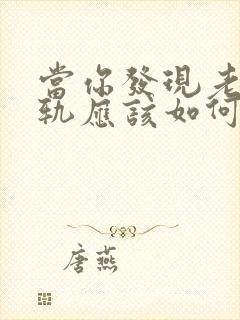 當你發現老
軌應該如何
唐燕